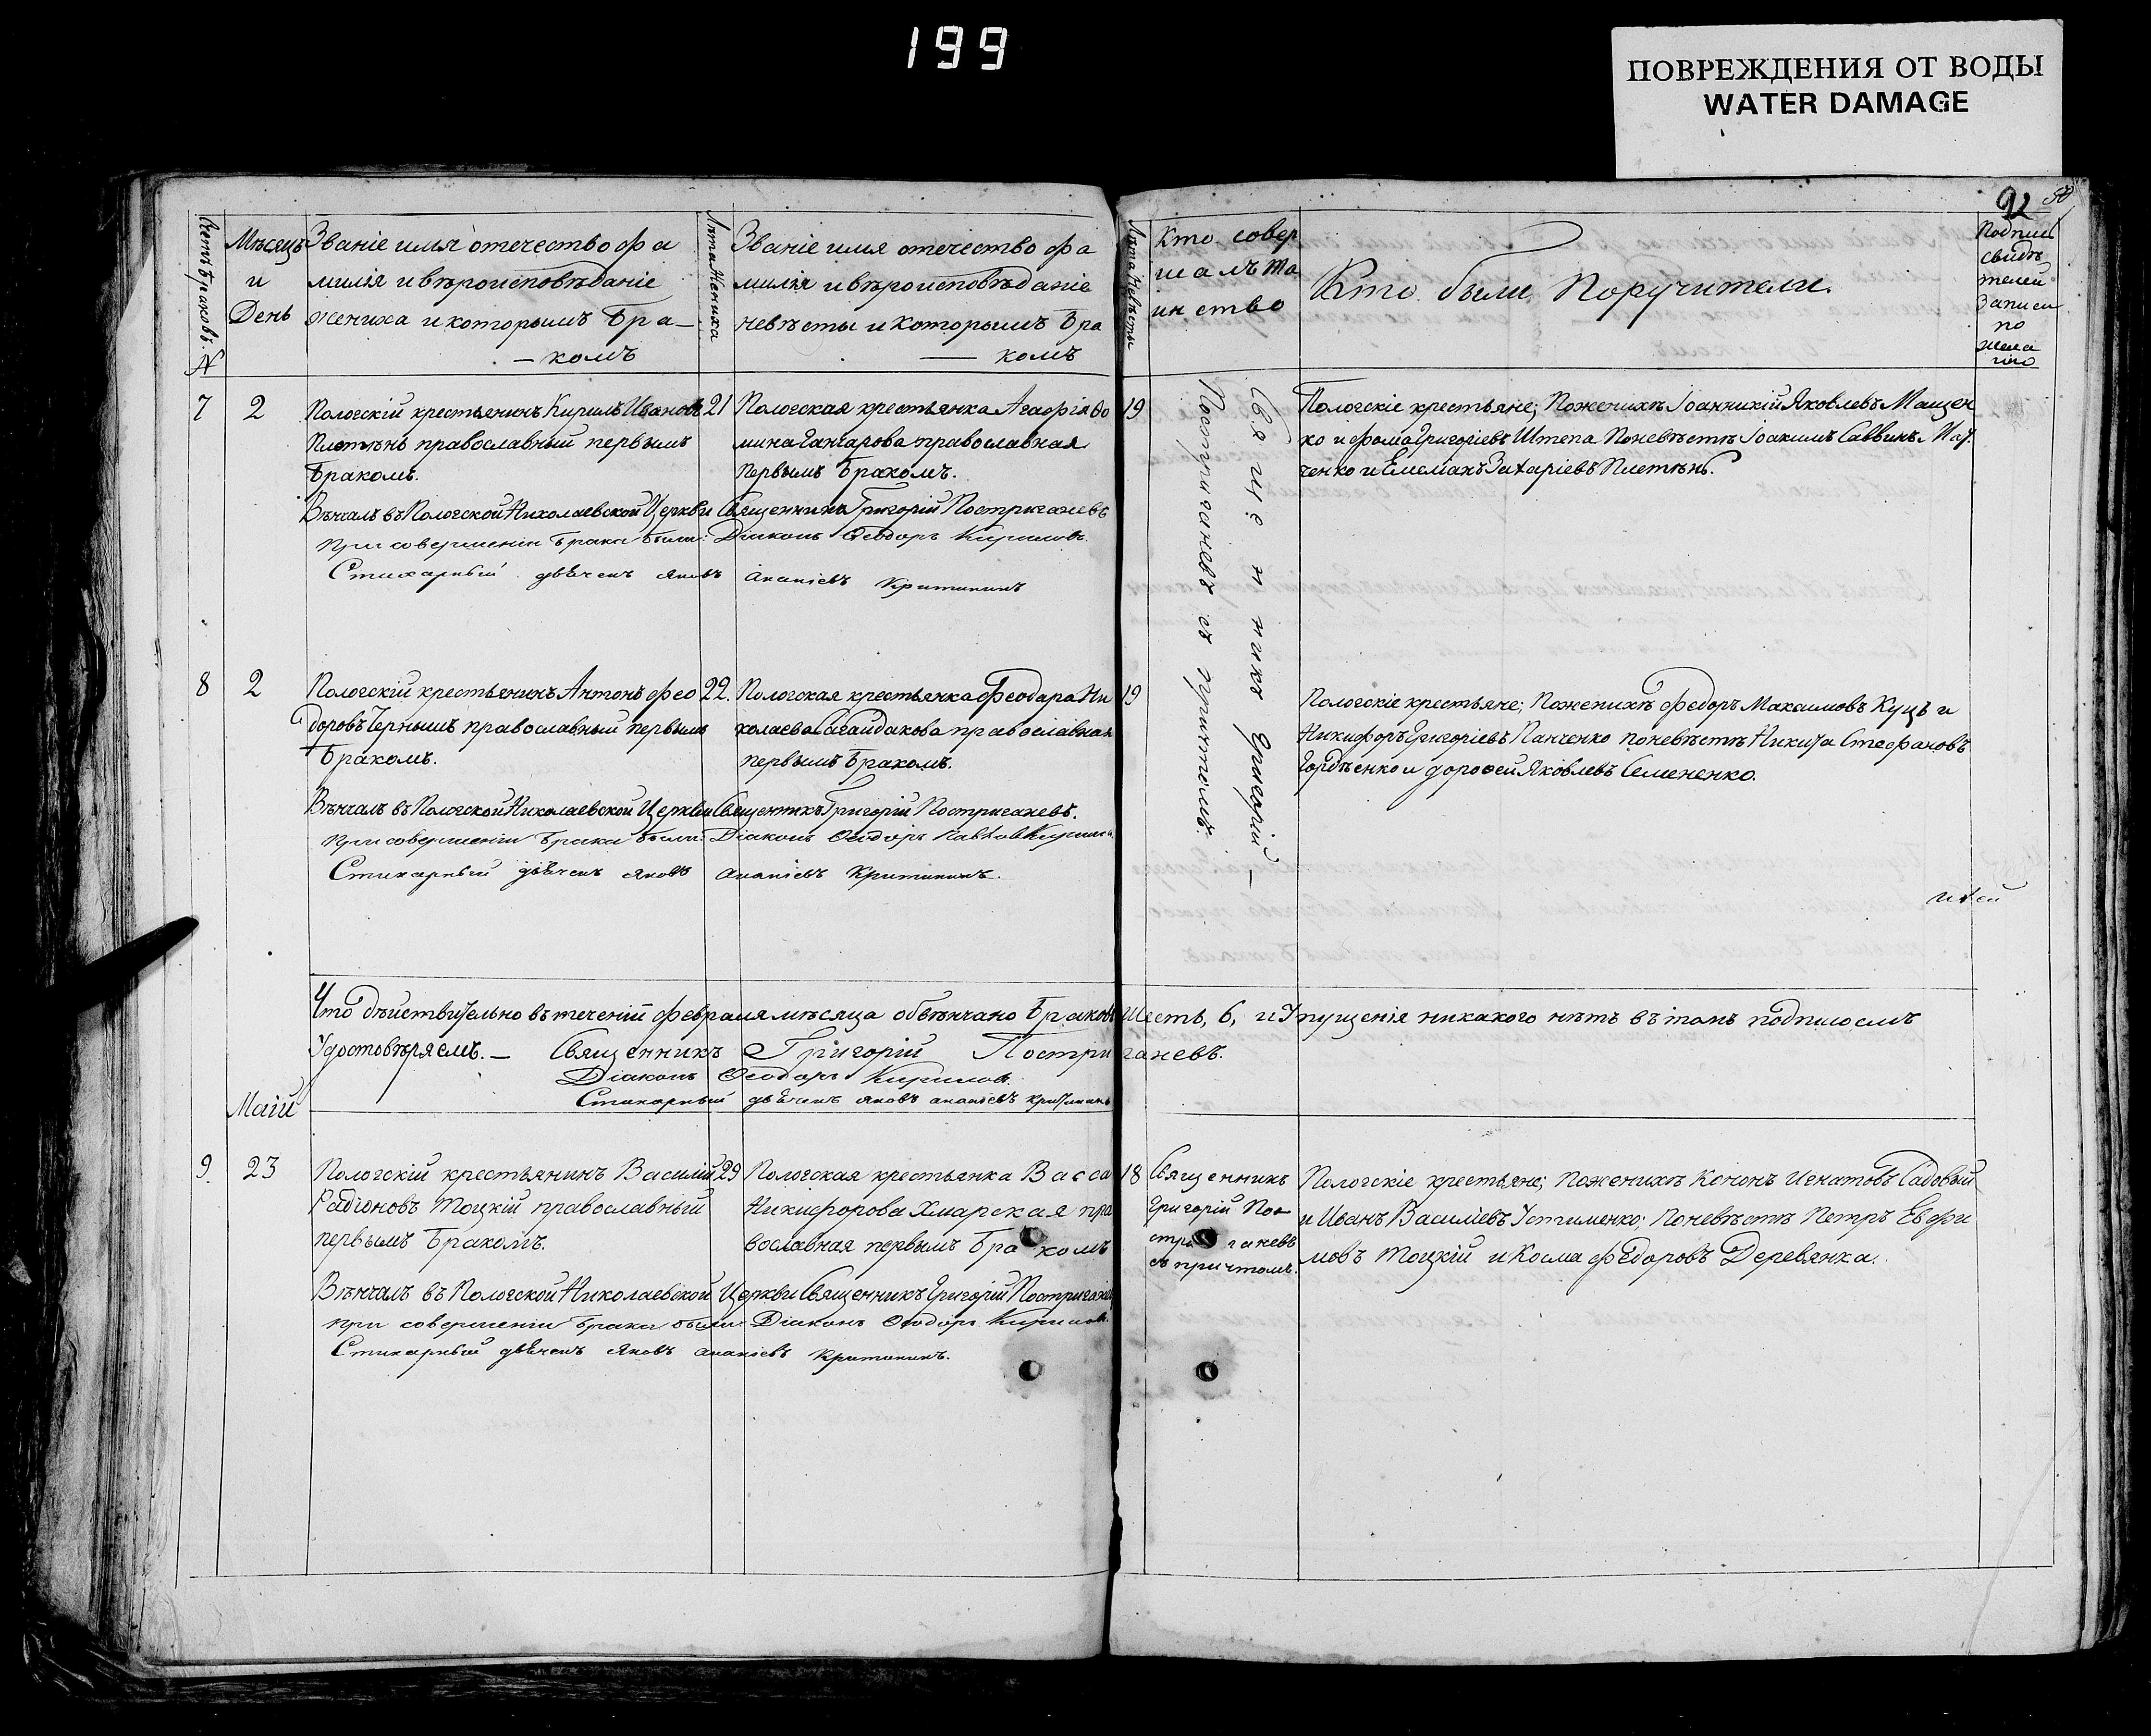 199
ПОВРЕЖДЕНИЯ ОТ ВОДЫ
WATER DAMAGE
92
Счетъ браковъ.
№
Мѣсяцъ
и
День
Званіе имя отечество фа
милія и вѣроисповѣданіе
жениха и которымъ бра–
– комъ
Лѣта Жениха
Званіе имя отечество фа
милія и вѣроисповѣданіе
невѣсты и которымъ бра
— комъ
Лѣта Невѣсты
Кто совер
шалъ та
инство
Кто были Поручители.
Подпись
свидѣ
телей
Записи
по
жела
нію
7
2
Пологскій крестьянинъ Кирилъ Ивановъ
Плетѣнь православный первымъ
бракомъ.
21
Пологская крестьянка Агафія Фо
мина Ганчарова православная
первымъ бракомъ.
19
Священникъ Григорій –
Постриганевъ съ причтомъ.
Пологскіе крестьяне; По женихѣ Іоанникій Яковлевъ Мащен
ко и Фома Григоріевъ Штепа По невѣстѣ Іоакимъ Саввинъ
ченко и Емеліанъ Захаріевъ Плетѣнь.
Вѣнчалъ въ Пологской Николаевской Церкви Священникъ Григорій Постриганевъ
При совершеніи брака были: Діаконъ Ѳеодоръ Кириловъ.
Стихарный дьячекъ Яковъ Ананіевъ Критининъ
8
2
Пологскій крестьянинъ Антонъ Фео
доровъ Чернышъ православный первымъ
бракомъ.
22.
Пологская крестьянка Феодара Ни
колаева Сагайдакова православная
первымъ бракомъ.
19
Пологскіе крестьяне; По женихѣ Федоръ Максимовъ Куцъ и
Никифоръ Григоріевъ Панченко по невѣстѣ Никита Стефановъ
Гордѣенко и Дорофей Яковлевъ Семененко.
Вѣнчалъ въ Пологской Николаевской Церкви Священникъ Григорій Постриганевъ.
При совершеніи брака были: Діаконъ Ѳеодоръ
Стихарный дьячекъ Яковъ Ананіевъ Критининъ.
Что дѣйствительно въ теченій февраля мѣсяца обвѣнчано браковъ Шесть, 6, и Упущенія никакого нѣтъ въ томъ подписомъ
Удостовѣряемъ. – Священникъ Григорій Постриганевъ.
Діаконъ Ѳеодоръ Кириловъ.
Стихарный дьячекъ Яковъ Ананіевъ Критининъ
Маій
9.
23
Пологскій крестьянинъ Василій
Радіоновъ Тоцкій православный
первымъ бракомъ.
29
Пологская крестьянка Васса
Никифорова Хмарская пра
вославная первымъ бракомъ
18
Священникъ
Григорій По
стриганевъ
съ причтомъ.
Пологскіе крестьяне; По женихѣ Кононъ Игнатовъ Садовый
и Иванъ Василіевъ Устименко; По невѣстѣ Петръ Евфи
мовъ Тоцкій и Косма Федоровъ Деревянка.
Вѣнчалъ въ Пологской Николаевской Церкви Священникъ Григорій Постриганевъ
При совершеніи брака были: Діаконъ Ѳеодоръ Кириловъ.
Стихарный дьячекъ Яковъ Ананіевъ Критининъ.